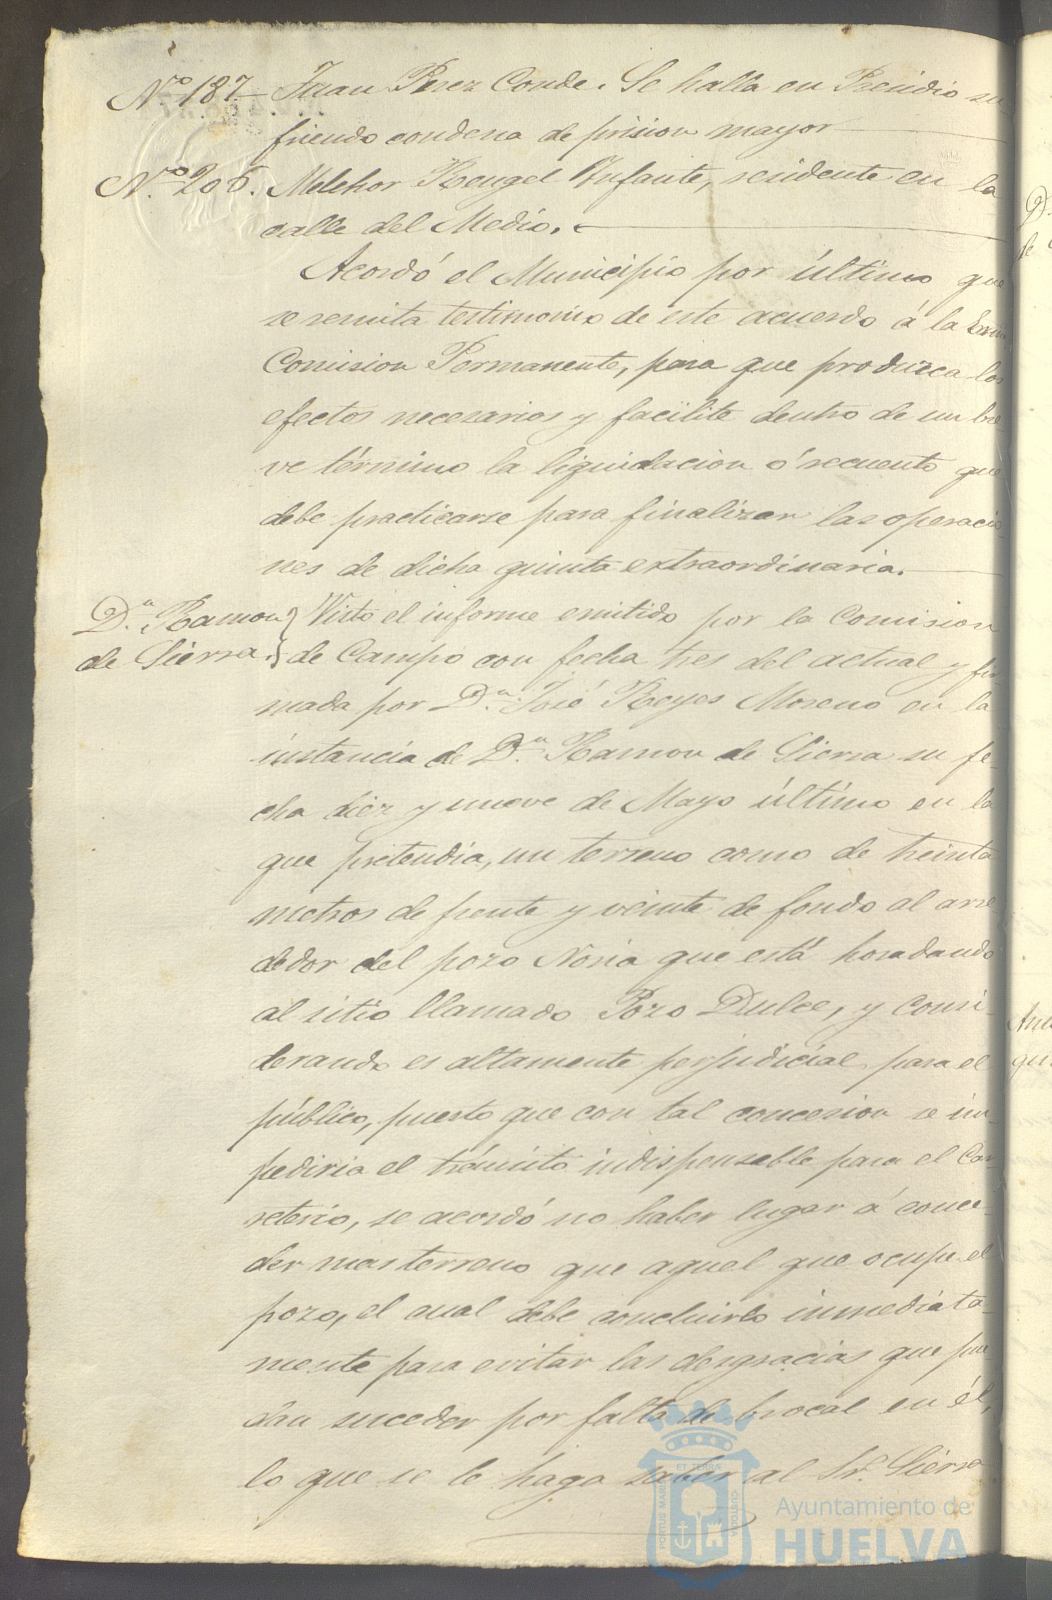 Nº 187 – Juan Perez Conde. Se halla en Presidio su
friendo condena de prision mayor
Nº 206. Melchor Rengel Infante, residente en la
calle del Medio.
Acordó el Municipio por último que
se remita testimonio de este acuerdo á la Exma
Comision Permanente, para que produzca los
efectos necesarios y facilite dentro de un bre
ve término la liquidacion ó recuento que
debe practicarse para finalizar las operacio
nes de dicha quinta extraordinaria.
Dn. Ramon
de Sierra.
Visto el informe emitido por la Comision
de Campo con fecha tres del actual y fir
mada por Dn. José Reyes Moreno en la
instancia de Dn. Ramon de Sierra su fe-
cha diez y nueve de Mayo último en la
que pretendia, un terreno como de treinta
metros de frente y veinte de fondo al arre
dedor del pozo Noria que está horadando
al sitio llamado Pozo Dulce, y consi-
derando es altamente perjudicial para el
público, puesto que con tal concesion se im-
pediria el tránsito indispensable para el Car
reterio, se acordó no haber lugar á conce-
der mas terreno que aquel que ocupe el
pozo, el cual debe concluirlo inmediata-
mente para evitar las desgracias que pue
dan suceder por falta de brocal en él,
lo que se le haga saber al Sr. Sierra
PORTUS MARIS
ET TERRÆ
CUSTODIA
Ayuntamiento de
HUELVA